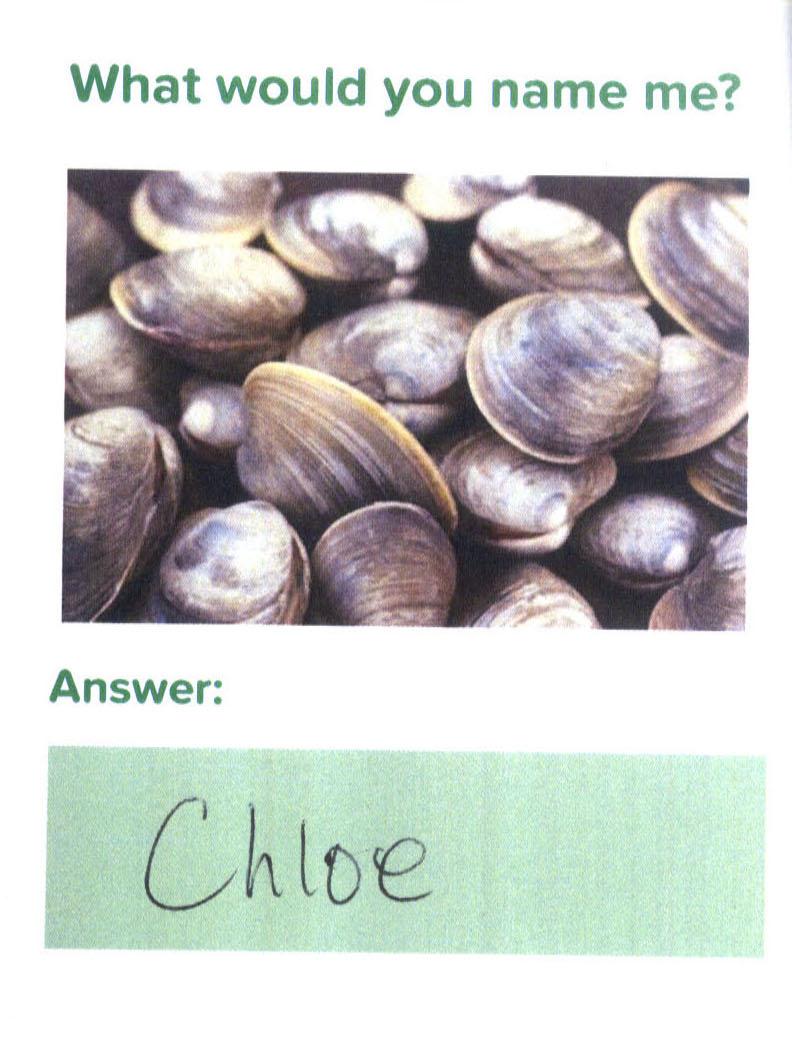 What would you name me?
Answer:
Chloe